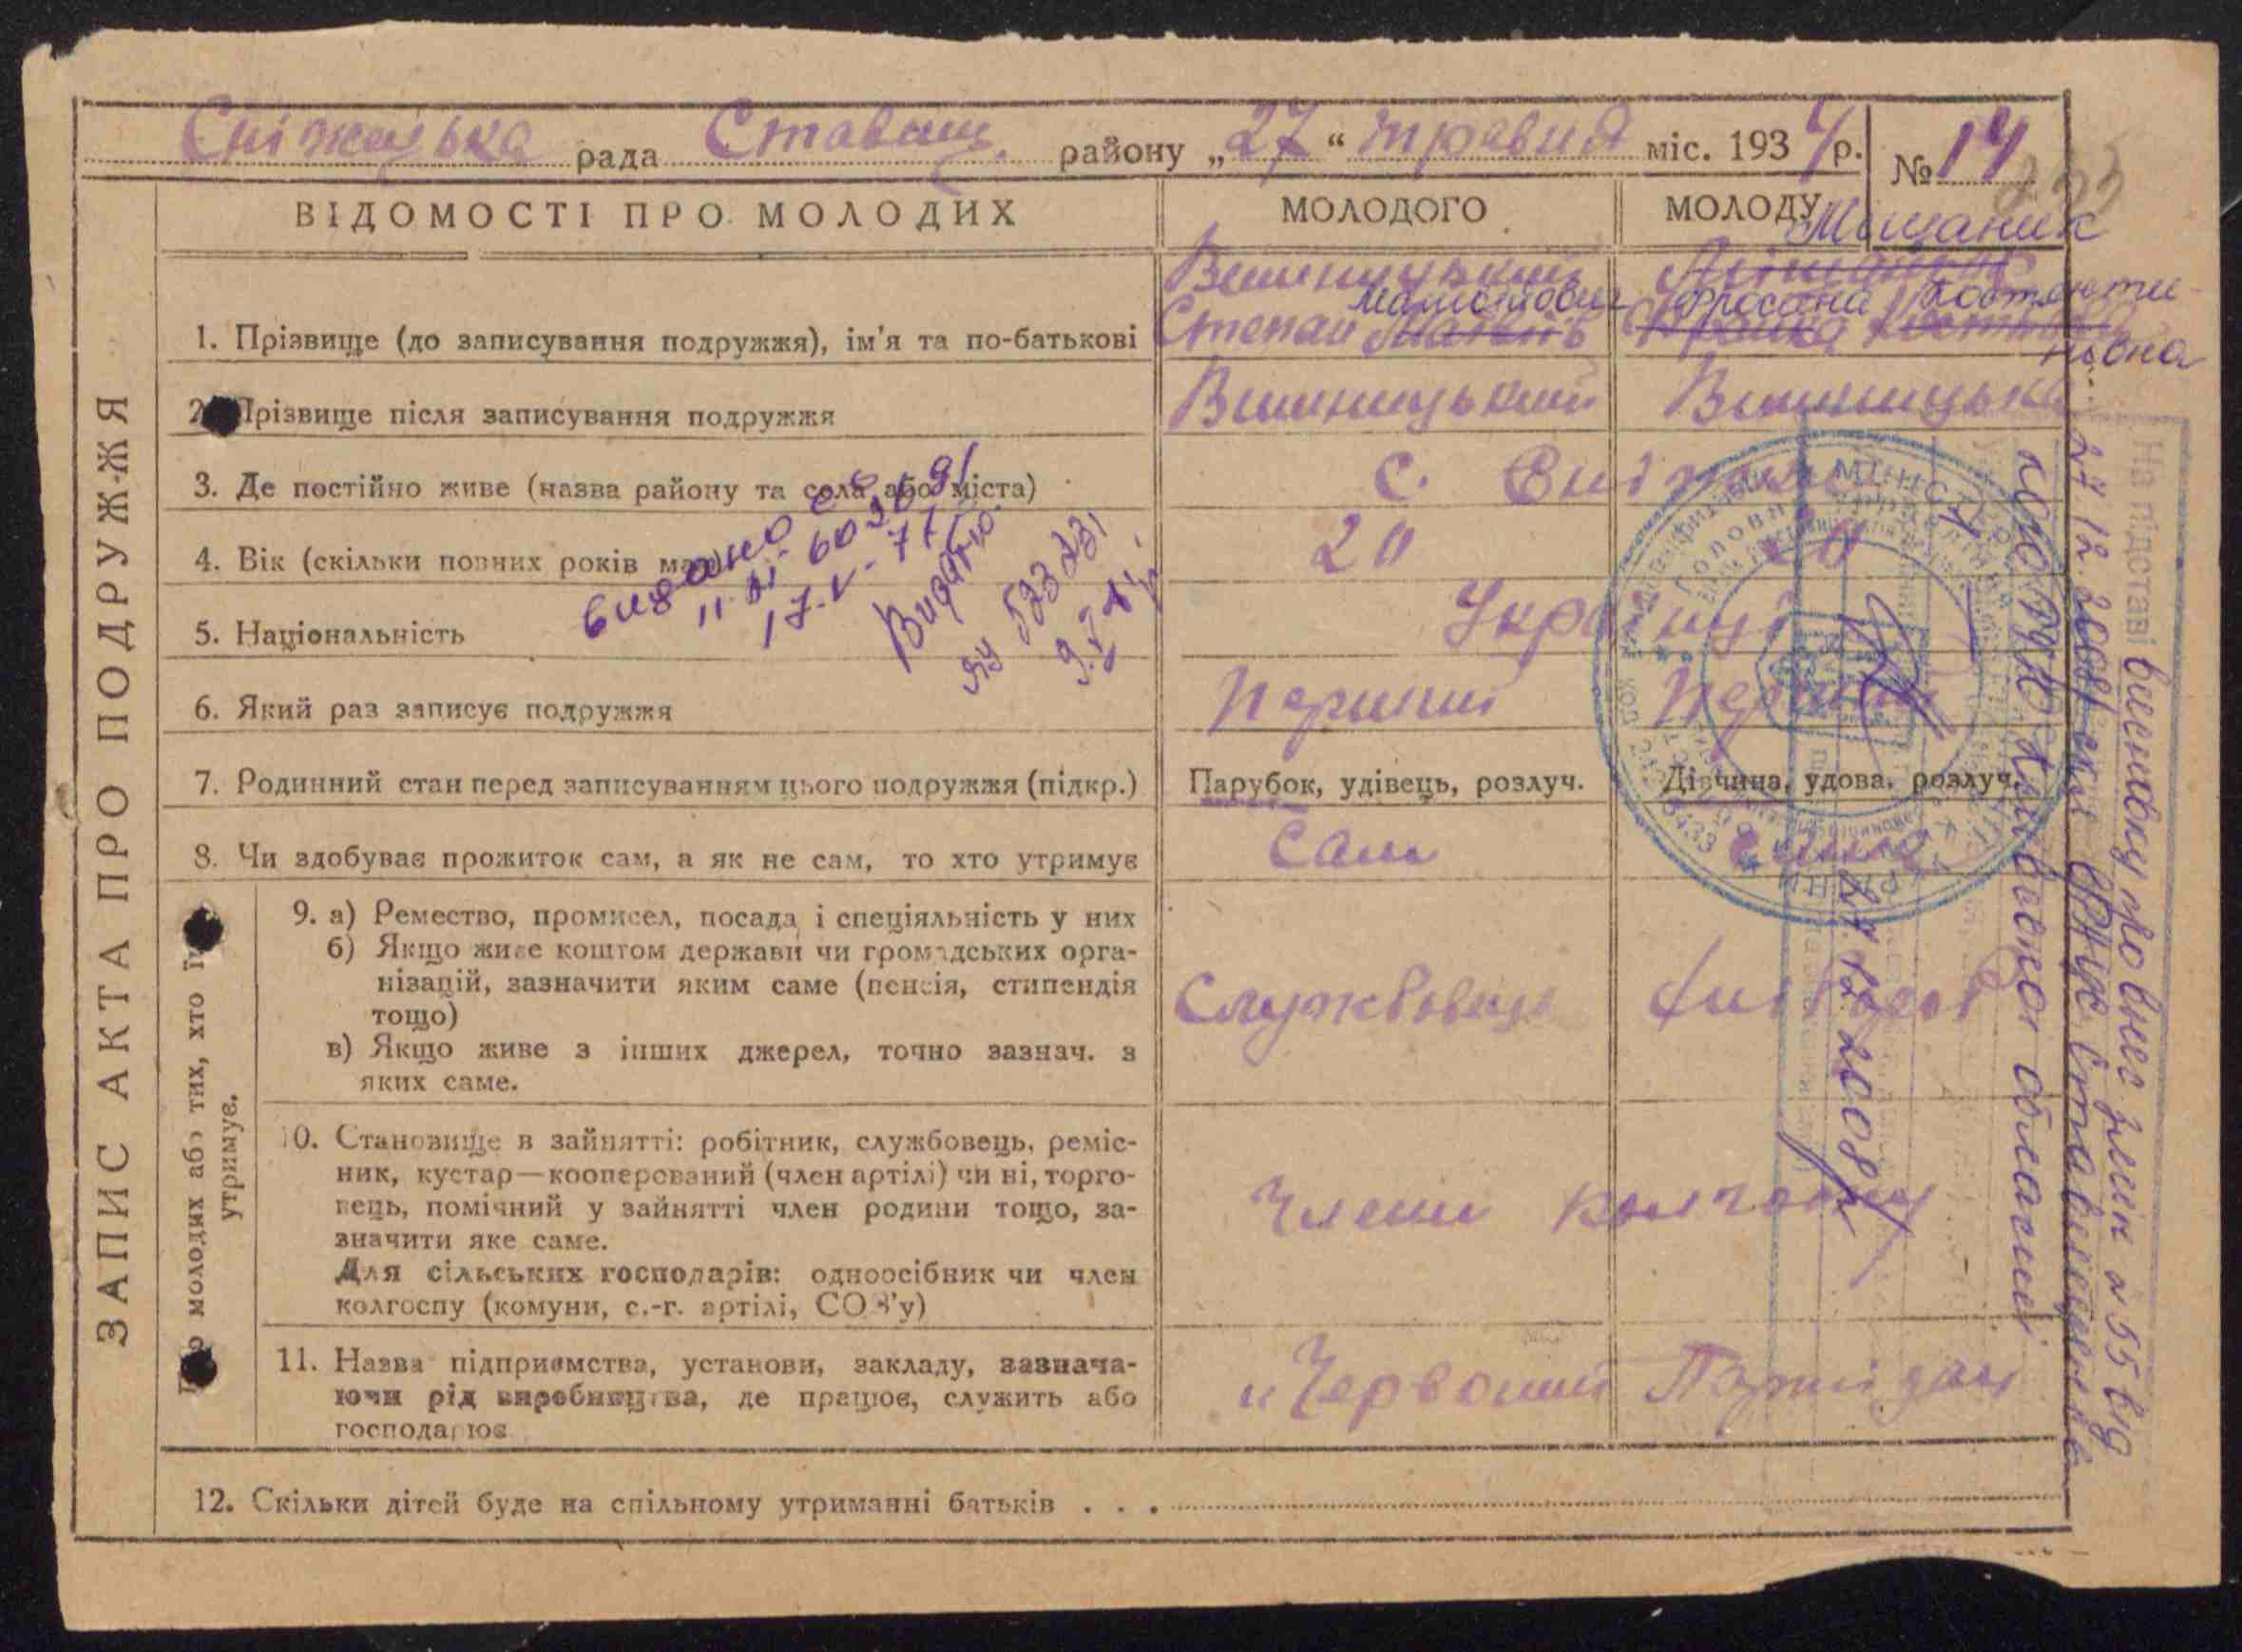 рада Ставищ. району „27“ травня міс. 1934 р. № 14
ВІДОМОСТІ ПРО МОЛОДИХ
МОЛОДОГО
МОЛОДУ
Мищаник
1. Прізвище (до записування подружжя), ім'я та по-батькові
Вишницький
Степан
Фросина Костянти
новна
2. Прізвище після записування подружжя
Вишницький
Вишницька
3. Де постійно живе (назва району та села, або міста)
с.
4. Вік (скільки повних років має)
20
20
5. Національність
Українці
6. Який раз записує подружжя
Перший
Перший
7. Родинний стан перед записуванням цього подружжя (підкр.)
Парубок, удівець, розлуч.
Дівчина, удова, розлуч.
8. Чи здобуває прожиток сам, а як не сам, то хто утримує
Сам
сама
9. а) Ремество, промисел, посада і спеціяльність у них
б) Якщо живе коштом держави чи громадських орга-
нізацій, зазначити яким саме (пенсія, стипендія
тощо)
в) Якщо живе з інших джерел, точно зазнач. з
яких саме.
Службовець
10. Становище в зайнятті: робітник, службовець, реміс-
ник, кустар—кооперований (член артілі) чи ні, торго-
вець, помічний у зайнятті член родини тощо, за-
значити яке саме.
Для сільських господарів: одноосібник чи член
колгоспу (комуни, с.-г. артілі, СОЗ'у)
Члени колгоспу
11. Назва підприємства, установи, закладу, зазнача-
ючи рід виробництва, де працює, служить або
господарює
„Червоний Партизан
12. Скільки дітей буде на спільному утриманні батьків . . .
ЗАПИС АКТА ПРО ПОДРУЖЖЯ
Про молодих або тих, хто їх
утримує.
видано
17-V-71
Видано
На підставі висновку про внес змін № 55 від
27.12.2008
Київської області
27.12.2008